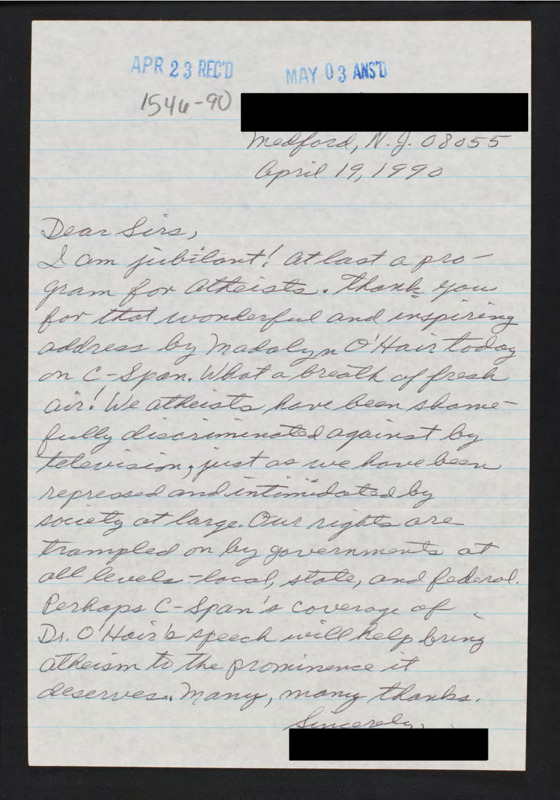 APR 23 REC'D
MAY 03 ANS'D
1546-90
Medford, N.J. 08055
April 19, 1990
Dear Sirs,
I am jubilant! At last a pro-
gram for atheists. Thank you
for that wonderful and inspiring
address by Madalyn O'Hair today
on C-Span. What a breath of fresh
air! We atheists have been shame-
fully discriminated against by
television, just as we have been
repressed and intimidated by
society at large. Our rights are
trampled on by governments at
all levels - local, state, and federal.
Perhaps C-Span's coverage of
Dr. O'Hair's speech will help bring
atheism to the prominence it
deserves. Many, many thanks.
Sincerely,